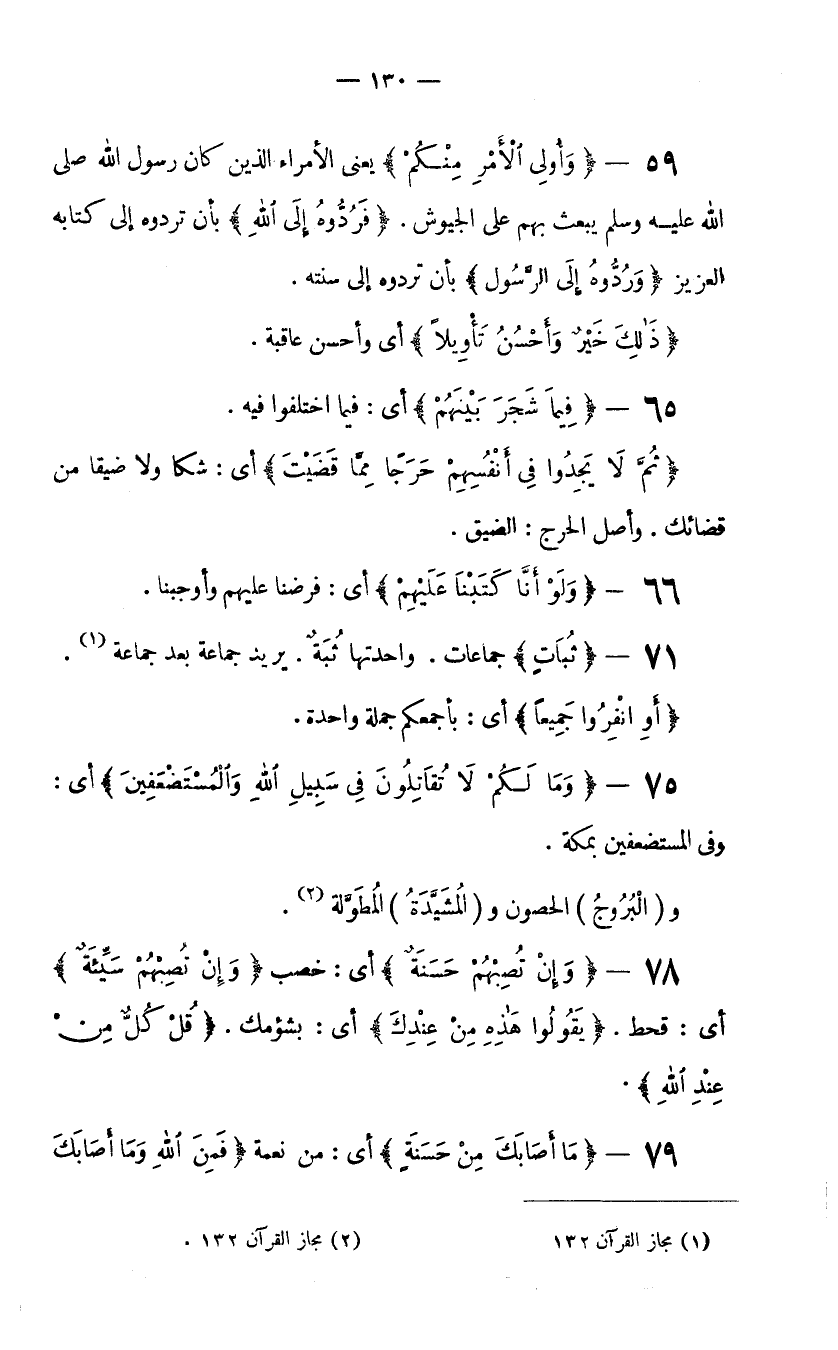 — ١٣٠ —
٥٩ — ﴿ وَأُولِى ٱلْأَمْرِ مِنْكُمْ ﴾ يعنى الأمراء الذين كان رسول الله صلى
الله عليه وسلم يبعث بهم على الجيوش . ﴿ فَرُدُّوهُ إِلَى ٱللهِ ﴾ بأن تردوه إلى كتابه
العزيز ﴿ وَرُدُّوهُ إِلَى الرَّسُول ﴾ بأن تردوه إلى سنته .
﴿ ذَٰلِكَ خَيْرٌ وَأَحْسَنُ تَأْوِيلاً ﴾ أى وأحسن عاقبة .
٦٥ — ﴿ فِيمَا شَجَرَ بَيْنَهُمْ ﴾ أى : فيما اختلفوا فيه .
﴿ ثُمَّ لَا يَجِدُوا فِى أَنْفُسِهِمْ حَرَجًا مِمَّا قَضَيْتَ ﴾ أى : شكا ولا ضيقا من
قضائك . وأصل الحرج : الضيق .
٦٦ — ﴿ وَلَوْ أَنَّا كَتَبْنَا عَلَيْهِمْ ﴾ أى : فرضنا عليهم وأوجبنا .
٧١ — ﴿ ثُبَاتٍ ﴾ جماعات . واحدتها ثُبَةٌ . يريد جماعة بعد جماعة (١) .
﴿ أَوِ انْفِرُوا جَمِيعاً ﴾ أى : بأجمعكم جملة واحدة .
٧٥ — ﴿ وَمَا لَكُمْ لَا تُقَاتِلُونَ فِى سَبِيلِ ٱللهِ وَٱلْمُسْتَضْعَفِينَ ﴾ أى :
وفى المستضعفين بمكة .
و ( الْبُرُوجُ ) الحصون و ( الْمُشَيَّدَةُ ) الْمُطَوَّلة (٢) .
٧٨ — ﴿ وَإِنْ تُصِبْهُمْ حَسَنَةٌ ﴾ أى : خصب ﴿ وَإِنْ تُصِبْهُمْ سَيِّئَةٌ ﴾
أى : قحط . ﴿ يَقُولُوا هَٰذِهِ مِنْ عِنْدِكَ ﴾ أى : بشؤمك . ﴿ قُلْ كُلٌّ مِنْ
عِنْدِ ٱللهِ ﴾ .
٧٩ — ﴿ مَا أَصَابَكَ مِنْ حَسَنَةٍ ﴾ أى : من نعمة ﴿ فَمِنَ ٱللهِ وَمَا أَصَابَكَ
(١) مجاز القرآن ١٣٢ (٢) مجاز القرآن ١٣٢ .